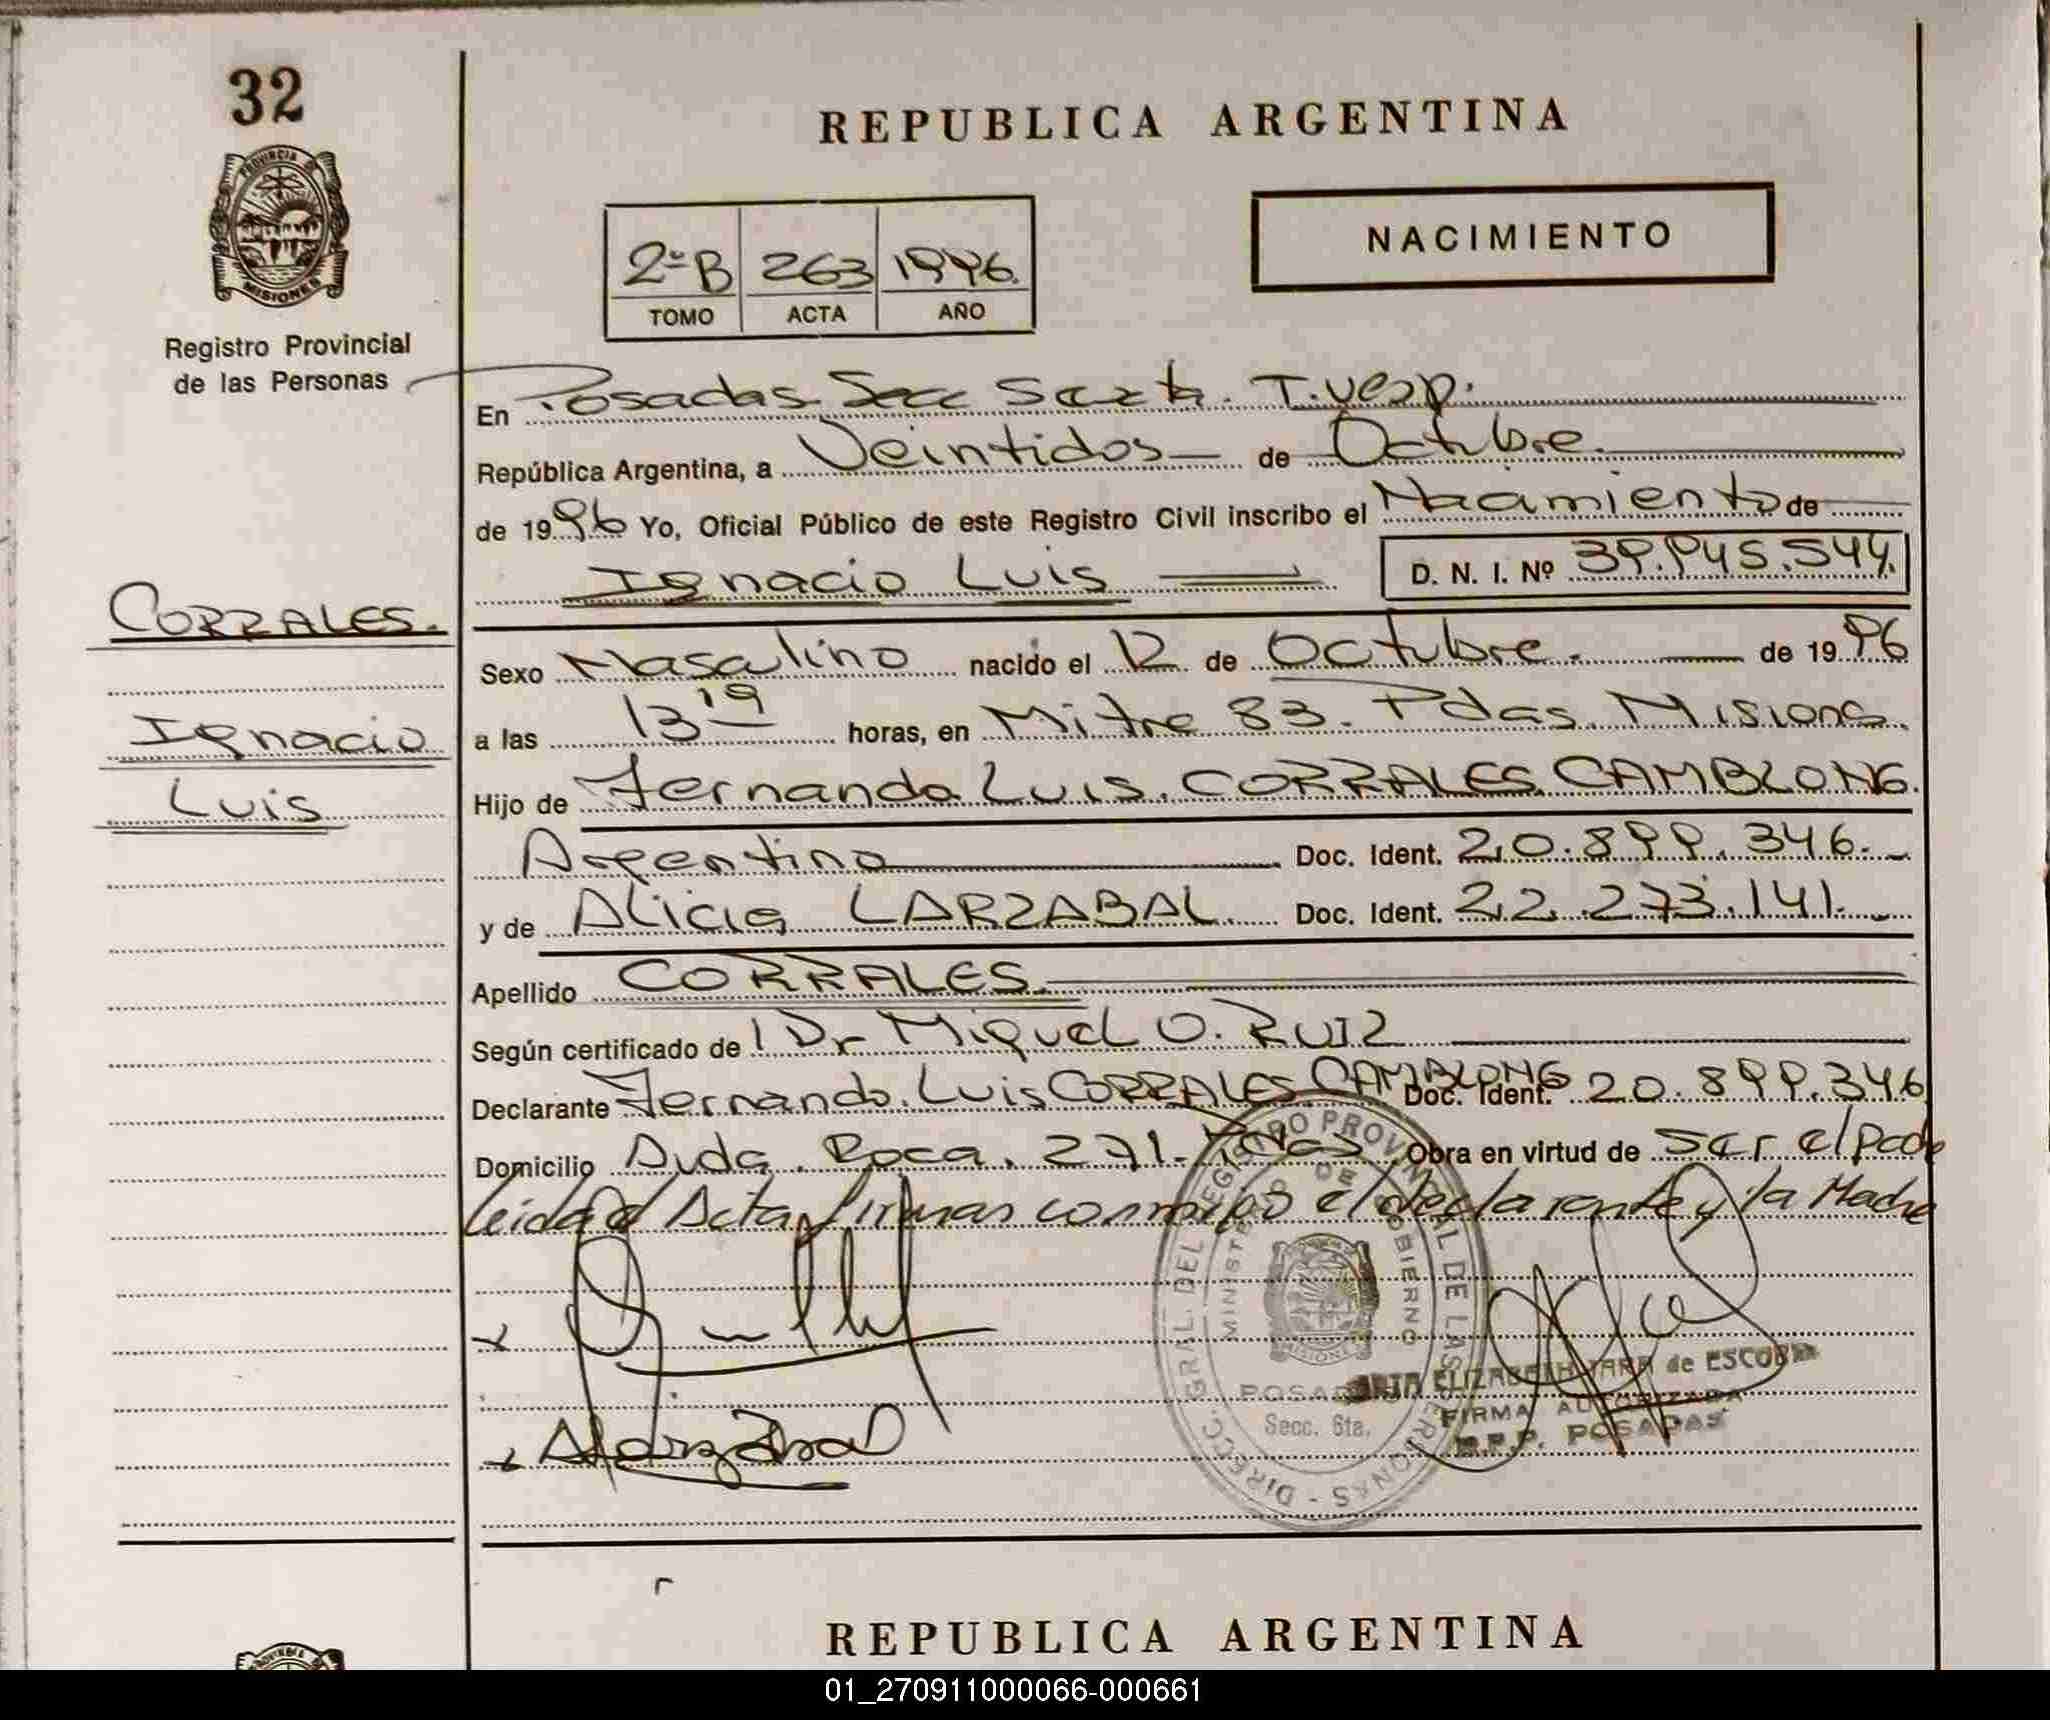 32
PROVINCIA DE
MISIONES
Registro Provincial
de las Personas
CORRALES.
Ignacio
Luis
REPUBLICA ARGENTINA
2ºB 263 1996.
TOMO ACTA AÑO
NACIMIENTO
En Posadas Secc Sexta. T. Vesp.
República Argentina, a Veintidos de Octubre.
de 1996 Yo, Oficial Público de este Registro Civil inscribo el Nacimiento de
Ignacio Luis D. N. I. Nº 39.945.544.
Sexo Masculino nacido el 12 de Octubre. de 1996
a las 13 19 horas, en Mitre 83. Pdas. Misiones.
Hijo de Fernando Luis. CORRALES CAMBLONG.
Argentino Doc. Ident. 20.899.346.
y de Alicia LARZABAL. Doc. Ident. 22.273.141.
Apellido CORRALES.
Según certificado de l Dr Miguel O. RUIZ
Declarante Fernando Luis CORRALES CAMBLONG Doc. Ident. 20.899.346
Domicilio Avda. Roca. 271. Pdas Obra en virtud de ser el padre
leida el Acta, firman conmigo el declarante y la Madre
DIRECC. GRAL. DEL REGISTRO PROVINCIAL DE LAS PERSONAS
MINISTERIO DE GOBIERNO
MISIONES
POSADAS
Secc. 6ta.
ELIZABETH JARA de ESCOBAR
FIRMA AUTORIZADA
R.P.P. POSADAS
REPUBLICA ARGENTINA
01_270911000066-000661